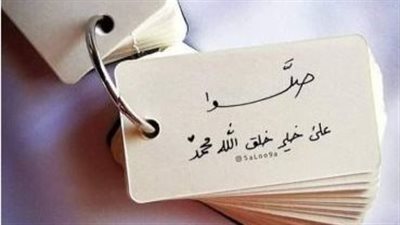 صلَّوا
على خير خلق الله محمد
@SaLoo9a